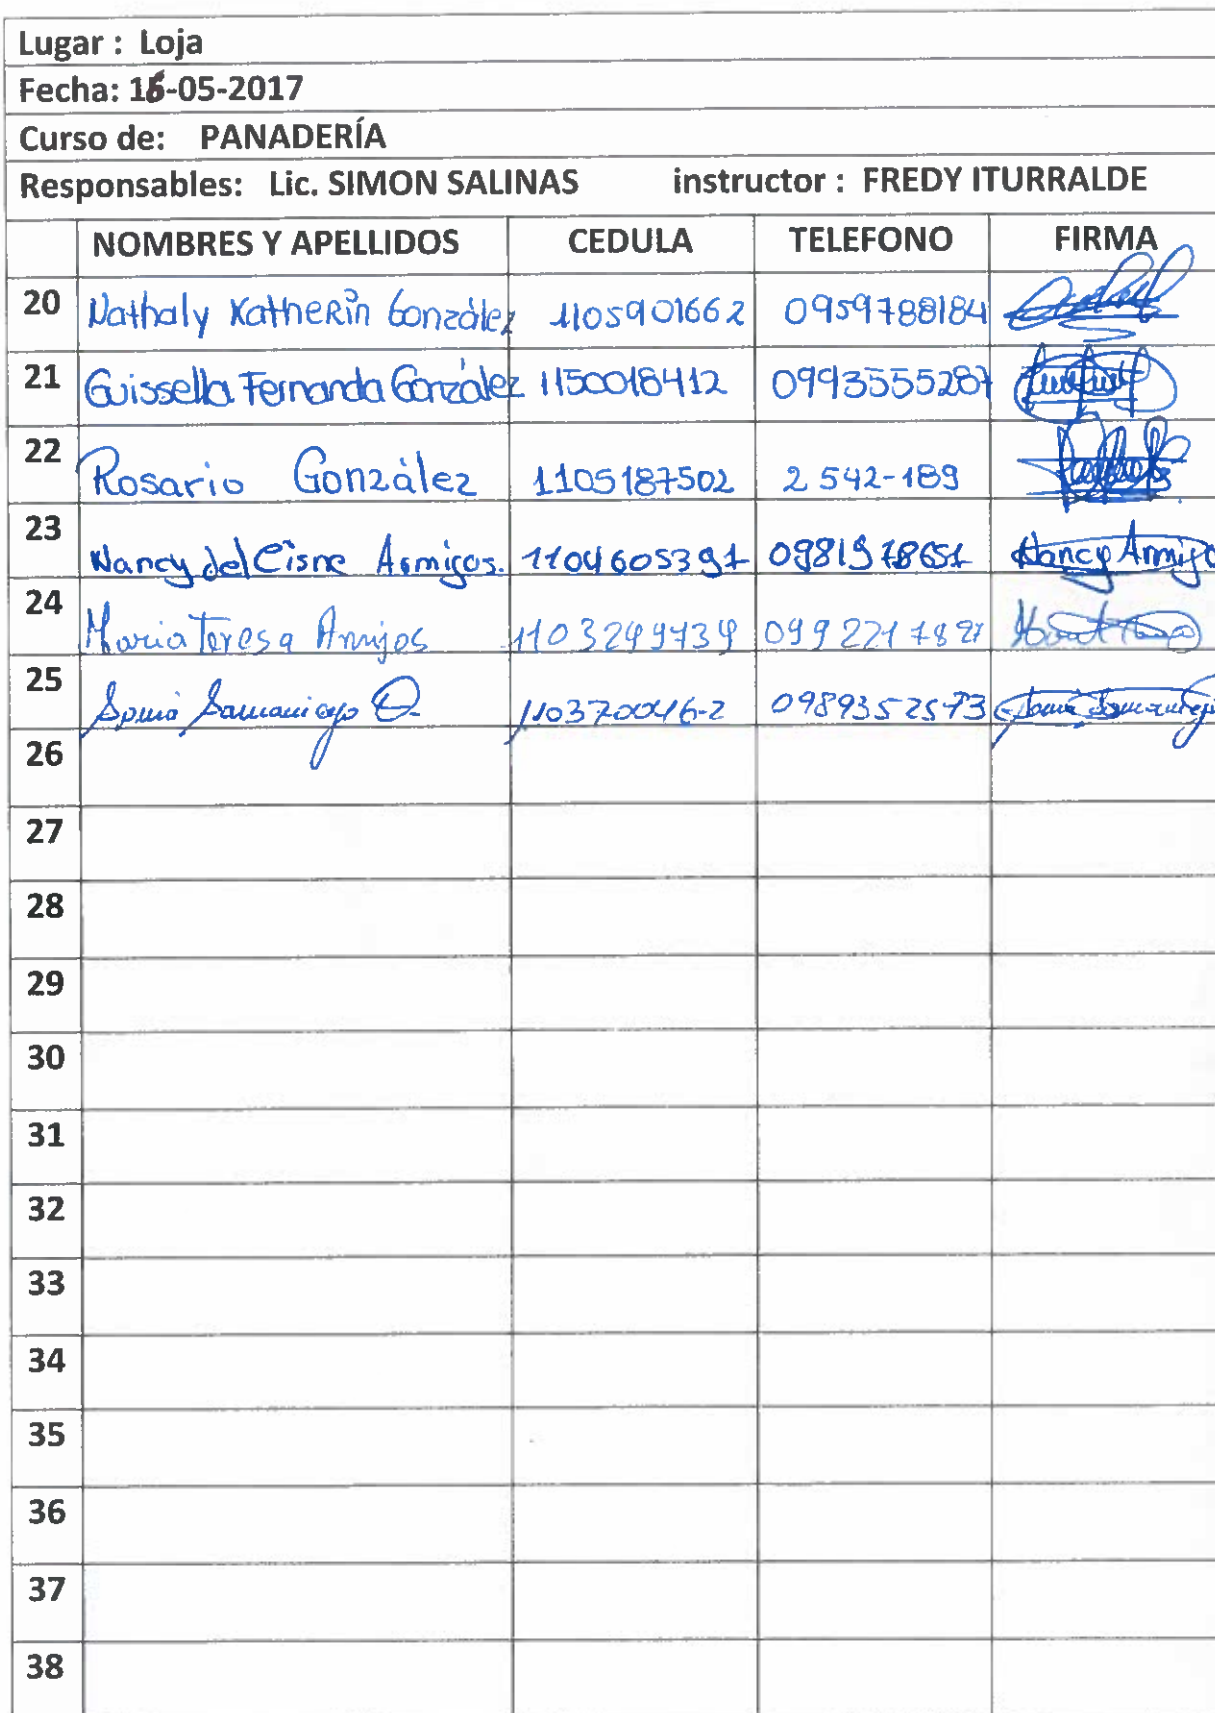 Lugar : Loja
Fecha: 16-05-2017
Curso de: PANADERÍA
Responsables: Lic. SIMON SALINAS instructor : FREDY ITURRALDE
NOMBRES Y APELLIDOS CEDULA TELEFONO FIRMA
20 Nathaly Katherin González 1105901662 0959788184
21 Guissella Fernanda González 1150018412 0993555287
22 Rosario González 1105187502 2 542-189
23 Nancy del Cisne Armijos. 1104605391 0981978651 Nancy Armijo
24 Maria Teresa Armijos 1103249739 0992217827
25 Sonia Samaniego 110370046-2 0989352573
26
27
28
29
30
31
32
33
34
35
36
37
38